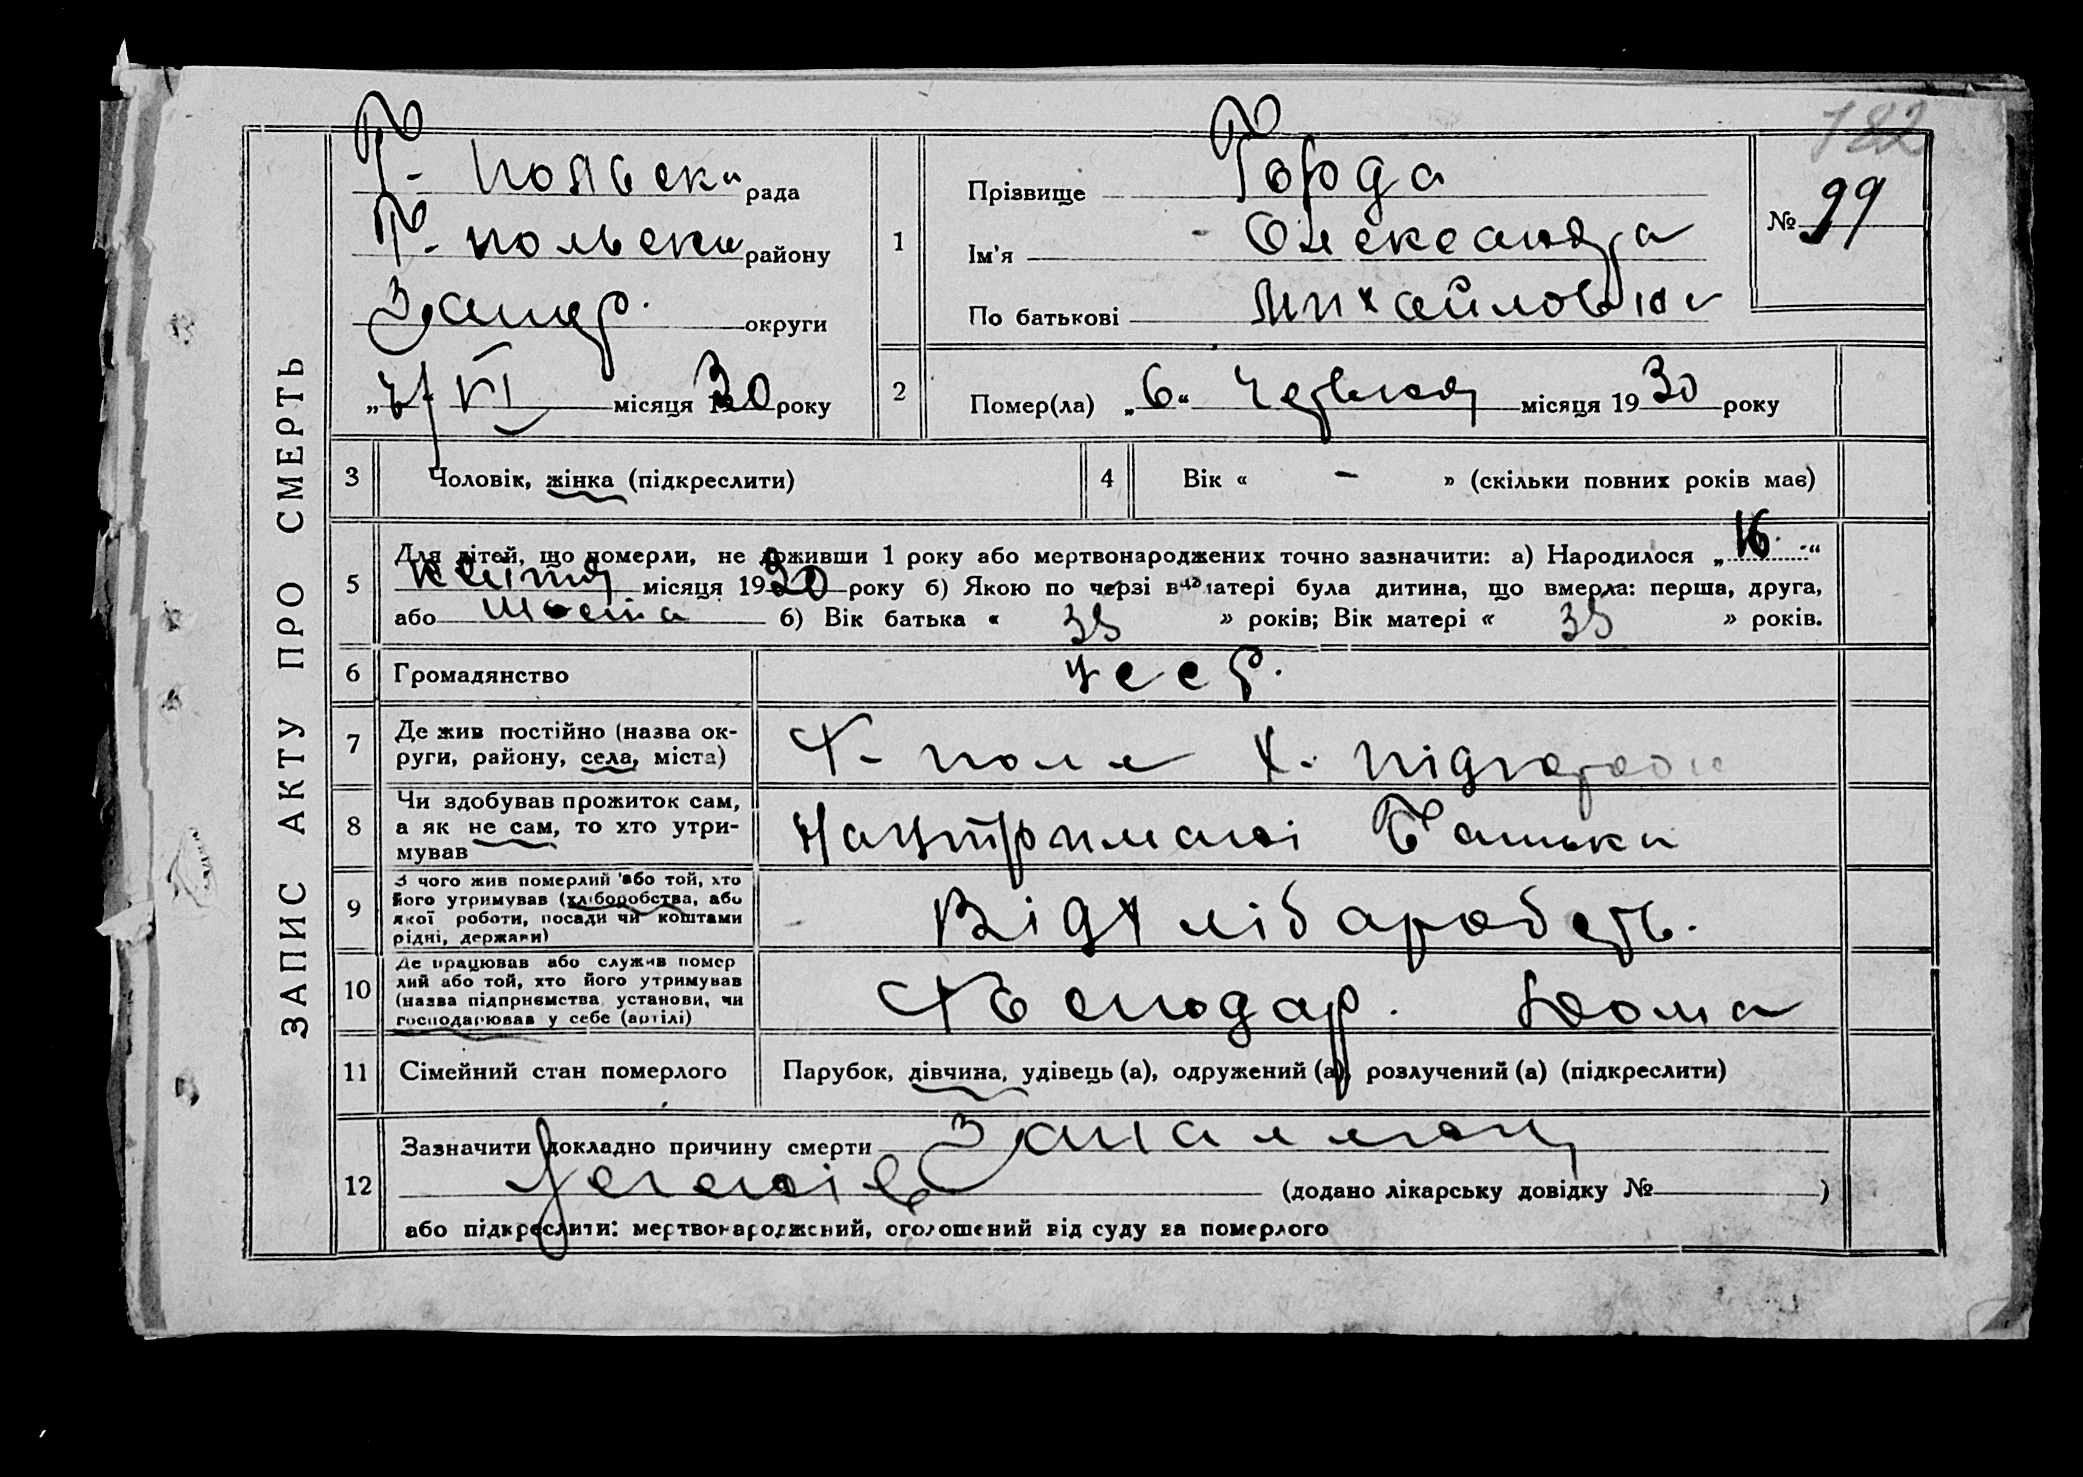 182
ЗАПИС АКТУ ПРО СМЕРТЬ
Г-польськ рада
Г-польськ району
Запор. округи
„7/VI місяця 1930 року
1
Прізвище Горда
Ім'я Олександра
По батькові Михайловна
№ 99
2
Помер(ла) „6“ Червня місяця 1930 року
3
Чоловік, жінка (підкреслити)
4
Вік « – » (скільки повних років має)
5
Для дітей, що померли, не доживши 1 року або мертвонароджених точно зазначити: а) Народилося „16“
квітня місяця 1930 року б) Якою по черзі в матері була дитина, що вмерла: перша, друга,
або шоста б) Вік батька « 35 » років; Вік матері « 35 » років.
6
Громадянство
УССР.
7
Де жив постійно (назва ок-
руги, району, села, міста)
Г-поле х.
8
Чи здобував прожиток сам,
а як не сам, то хто утри-
мував
На утриманні Батьки
9
З чого жив померлий або той, хто
його утримував (хліборобства, або
якої роботи, посади чи коштами
рідні, держави)
Від хліборобств.
10
Де працював або служив помер
лий або той, хто його утримував
(назва підприємства, установи, чи
господарював у себе (артілі)
Господар. Дома
11
Сімейний стан померлого
Парубок, дівчина, удівець (а), одружений (а), розлучений (а) (підкреслити)
12
Зазначити докладно причину смерти Запалення
легенів (додано лікарську довідку № )
або підкреслити: мертвонароджений, оголошений від суду за померлого